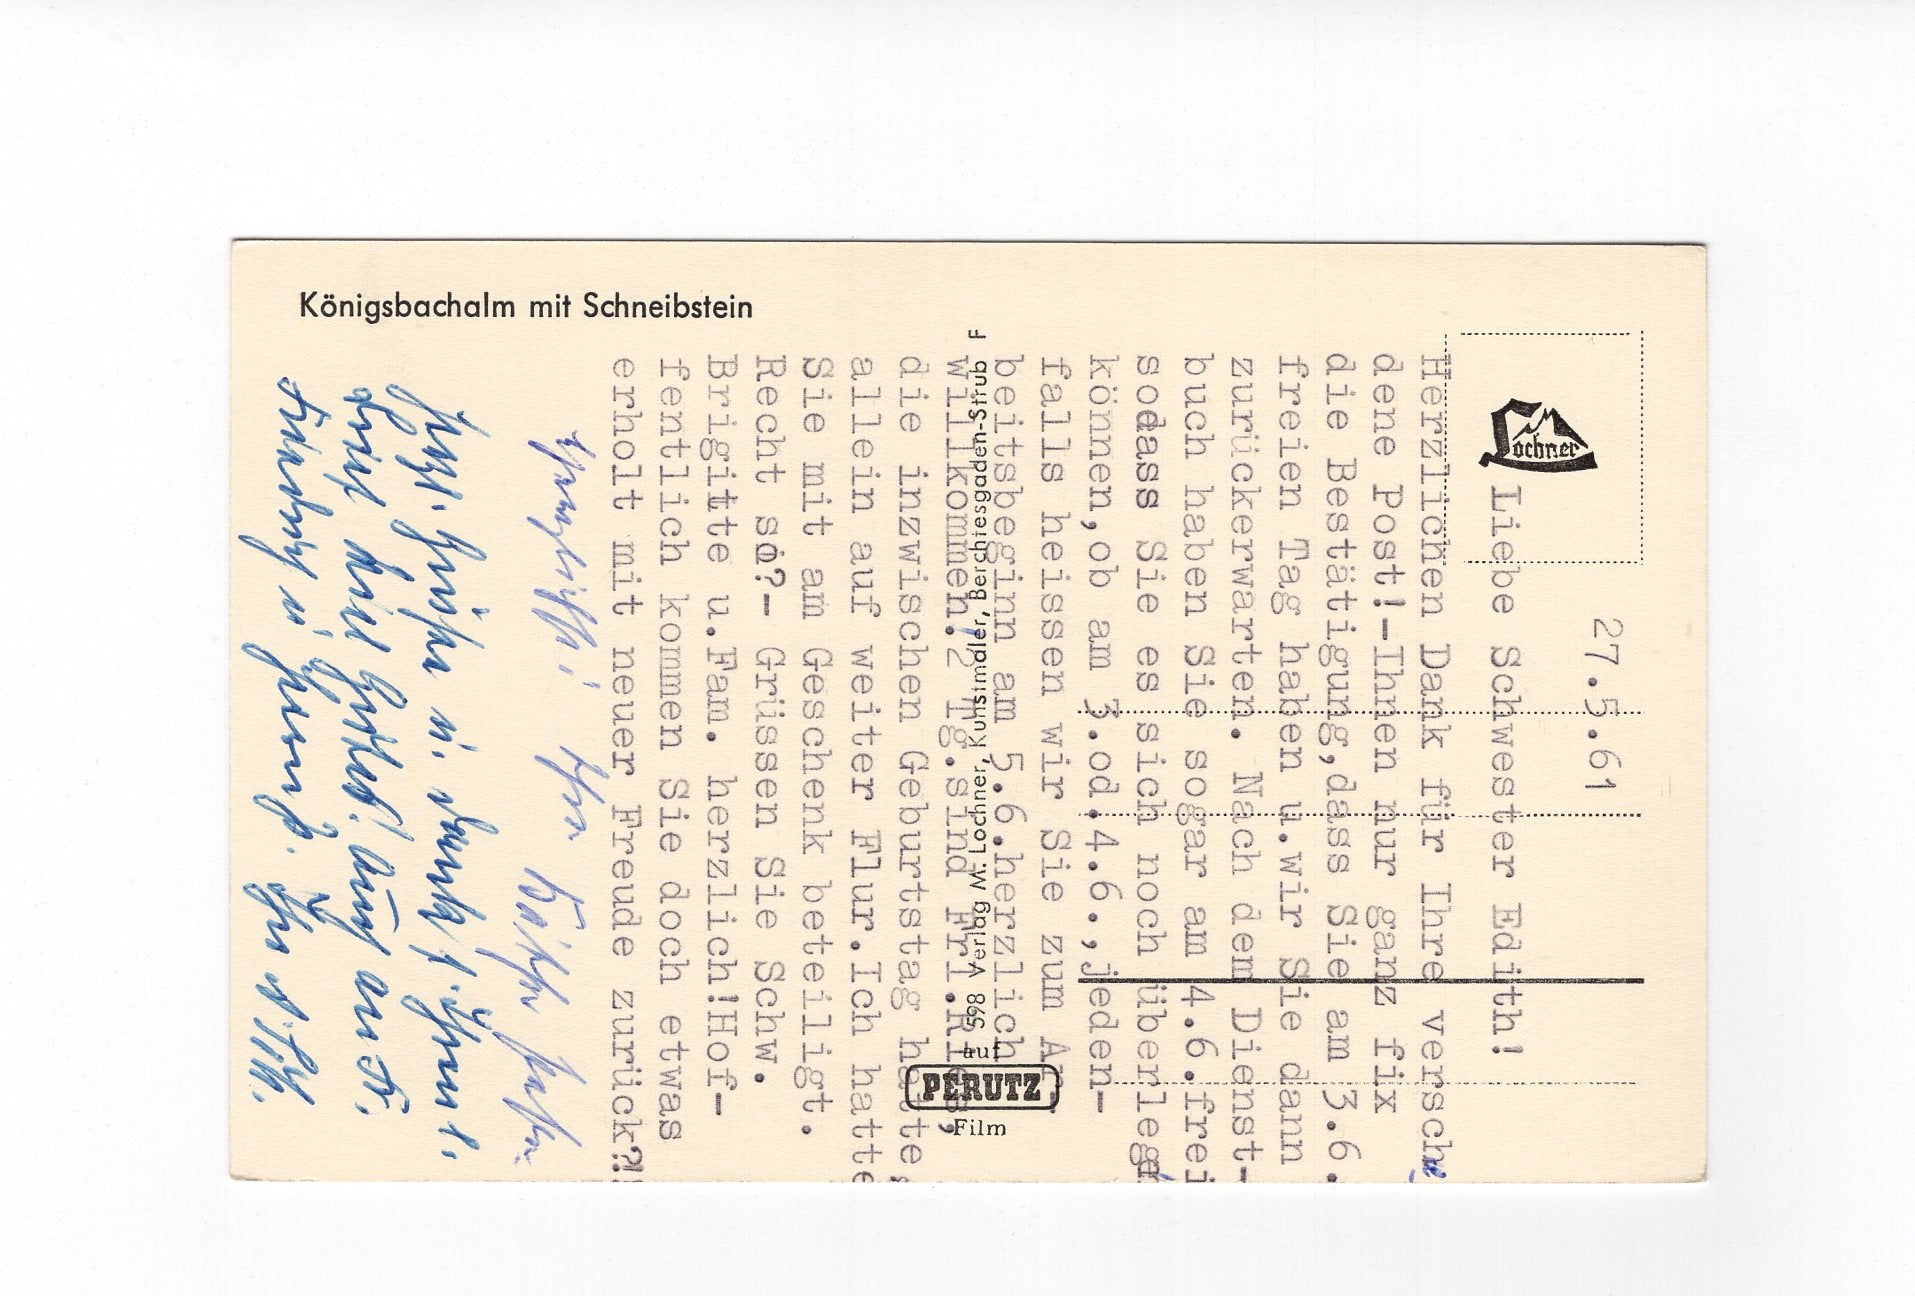 Königsbachalm mit Schneibstein
Lochner
27.5.61
Liebe Schwester Edith!
Herzlichen Dank für Ihre verschie
dene Post!-Ihnen nur ganz fix
die Bestätigung,dass Sie am 3.6.
freien Tag haben u.wir Sie dann
zurückerwarten. Nach dem Dienst-
buch haben Sie sogar am 4.6.frei
sodass Sie es sich noch überlegen
können,ob am 3.od.4.6.,jeden-
falls heissen wir Sie zum Ar-
beitsbeginn am 5.6.herzlich
willkommen!2 Tg.sind Frl.
die inzwischen Geburtstag hatte,
allein auf weiter Flur.Ich hatte
Sie mit am Geschenk beteiligt.
Recht so?- Grüssen Sie Schw.
Brigitte u.Fam. herzlich!Hof-
fentlich kommen Sie doch etwas
erholt mit neuer Freude zurück?!
Ihre
Herzl. Grüße u.
598 Verlag M. Lochner, Kunstmaler, Berchtesgaden-Strub F
auf
PERUTZ
Film